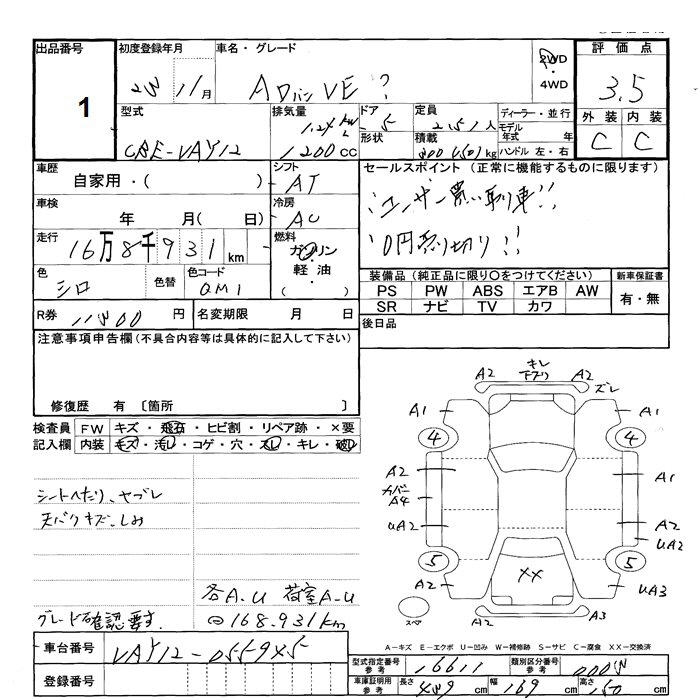 出品番号 初度登録年月 車名・グレード 評価点
1 11月 ADバン VE ? 2WD 3.5
4WD
型式 排気量 ドア 定員 ディーラー・並行 外装 内装
モデル年式 年
CBE-VAY12 1200cc 5 2.5人 形状 積載 kg ハンドル 左・右 C C
車歴 シフト セールスポイント (正常に機能するものに限ります)
自家用・( ) AT
車検 冷房 ユーザー買い取り車!!
年 月( 日) AC
走行 燃料 0円売り切り!!
16万8千931km ガソリン
軽油
( )
色 色替 色コード 装備品(純正品に限り○をつけてください) 新車保証書
シロ QM1 PS PW ABS エアB AW 有・無
SR ナビ TV カワ
R券 円 名変期限 月 日 後日品
注意事項申告欄(不具合内容等は具体的に記入して下さい)
修復歴 有 〔箇所 〕
検査員 FW キズ・飛石・ヒビ割・リペア跡・×要
記入欄 内装 キズ・汚レ・コゲ・穴・スレ・キレ・破レ
シートへたり、ヤブレ
天バリキズ、しみ
各A-U 荷室A-U
グレード確認要す ◎168.931km
キレ
A2 下ズリ A2
ズレ
A1 A1
4 4
A2 A1
カバー
A4
UA2 A2
UA2
5 5
A2 XX UA3
スペア A2 A3
A-キズ E-エクボ U-凹み W-補修跡 S-サビ C-腐食 XX-交換済
車台番号
登録番号
型式指定番号 参考 16611 類別区分番号 参考
車庫証明用 参考 長さ cm 幅 169cm 高さ 150cm